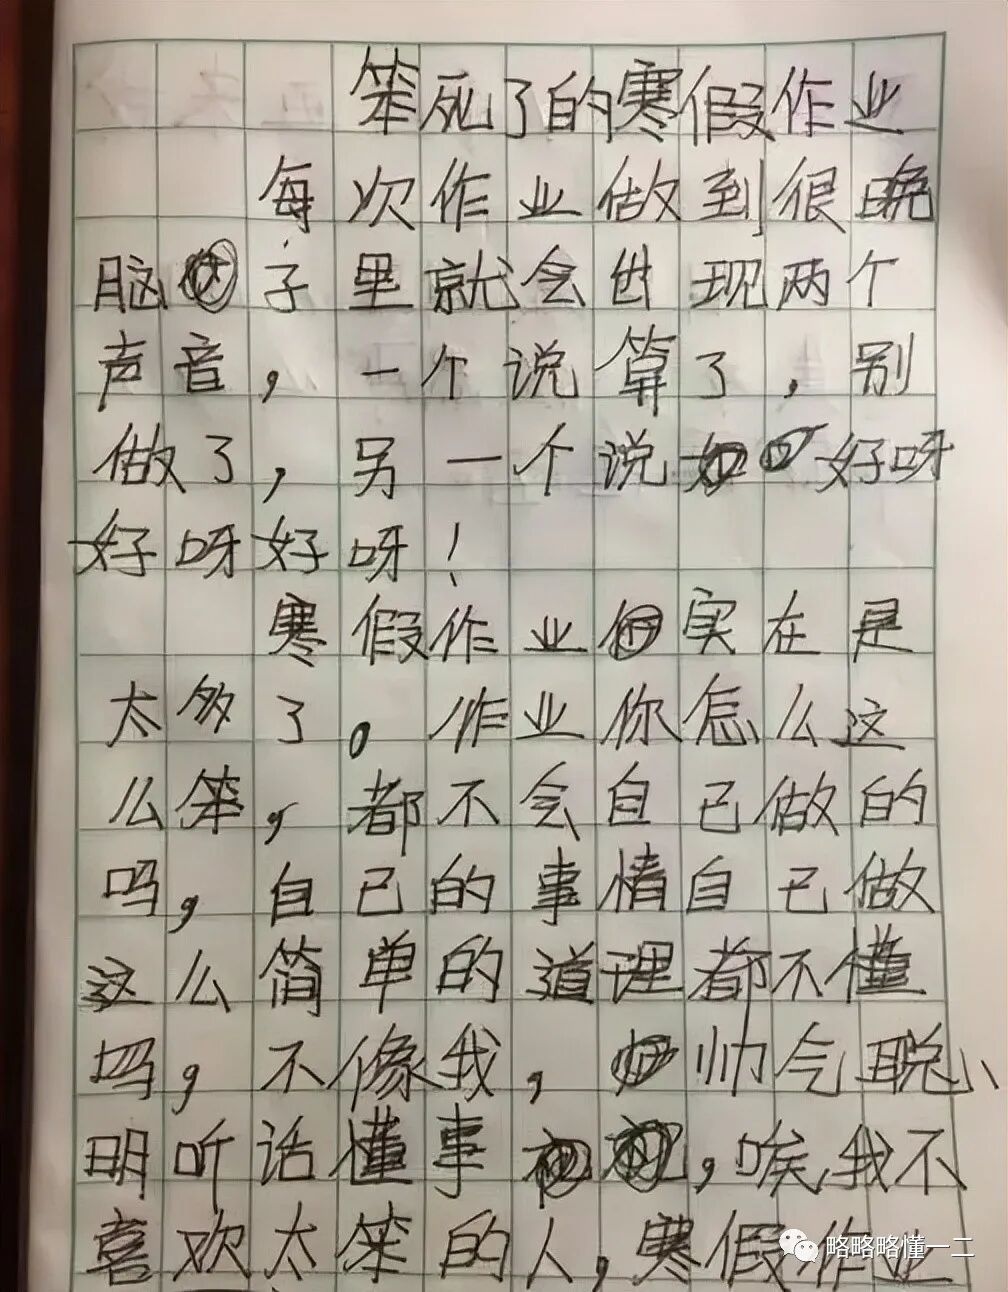 笨死了的寒假作业
每次作业做到很晚
脑子里就会出现两个
声音，一个说算了，别
做了，另一个说好呀
好呀好呀！
寒假作业实在是
太多了。作业你怎么这
么笨，都不会自己做的
吗，自己的事情自己做
这么简单的道理都不懂
吗，不像我，帅气聪
明听话懂事，唉，我不
喜欢太笨的人，寒假作业
略略略懂一二